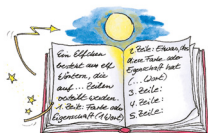 Ein Elfchen
besteht aus elf
Wörtern, die
auf ... Zeilen
verteilt werden.
1. Zeile: Farbe oder
Eigenschaft (1 Wort)
2. Zeile: Etwas, das
diese Farbe oder
Eigenschaft hat
(... Wort)
3. Zeile:
4. Zeile:
5. Zeile: